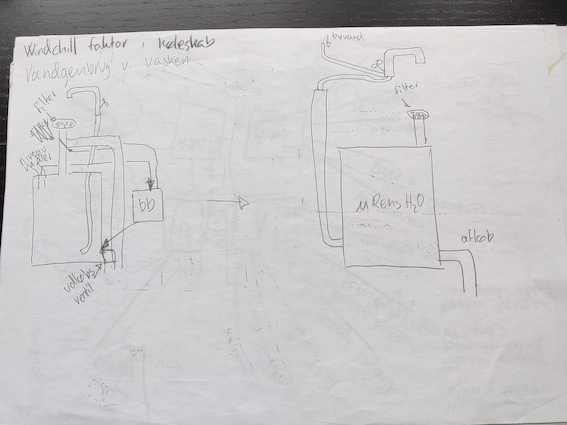 Windchill faktor i køleskab
Vandgenbrug v. vasken
filter
niveau
bb
ventil
byvand
filter
µRensH₂O
afløb